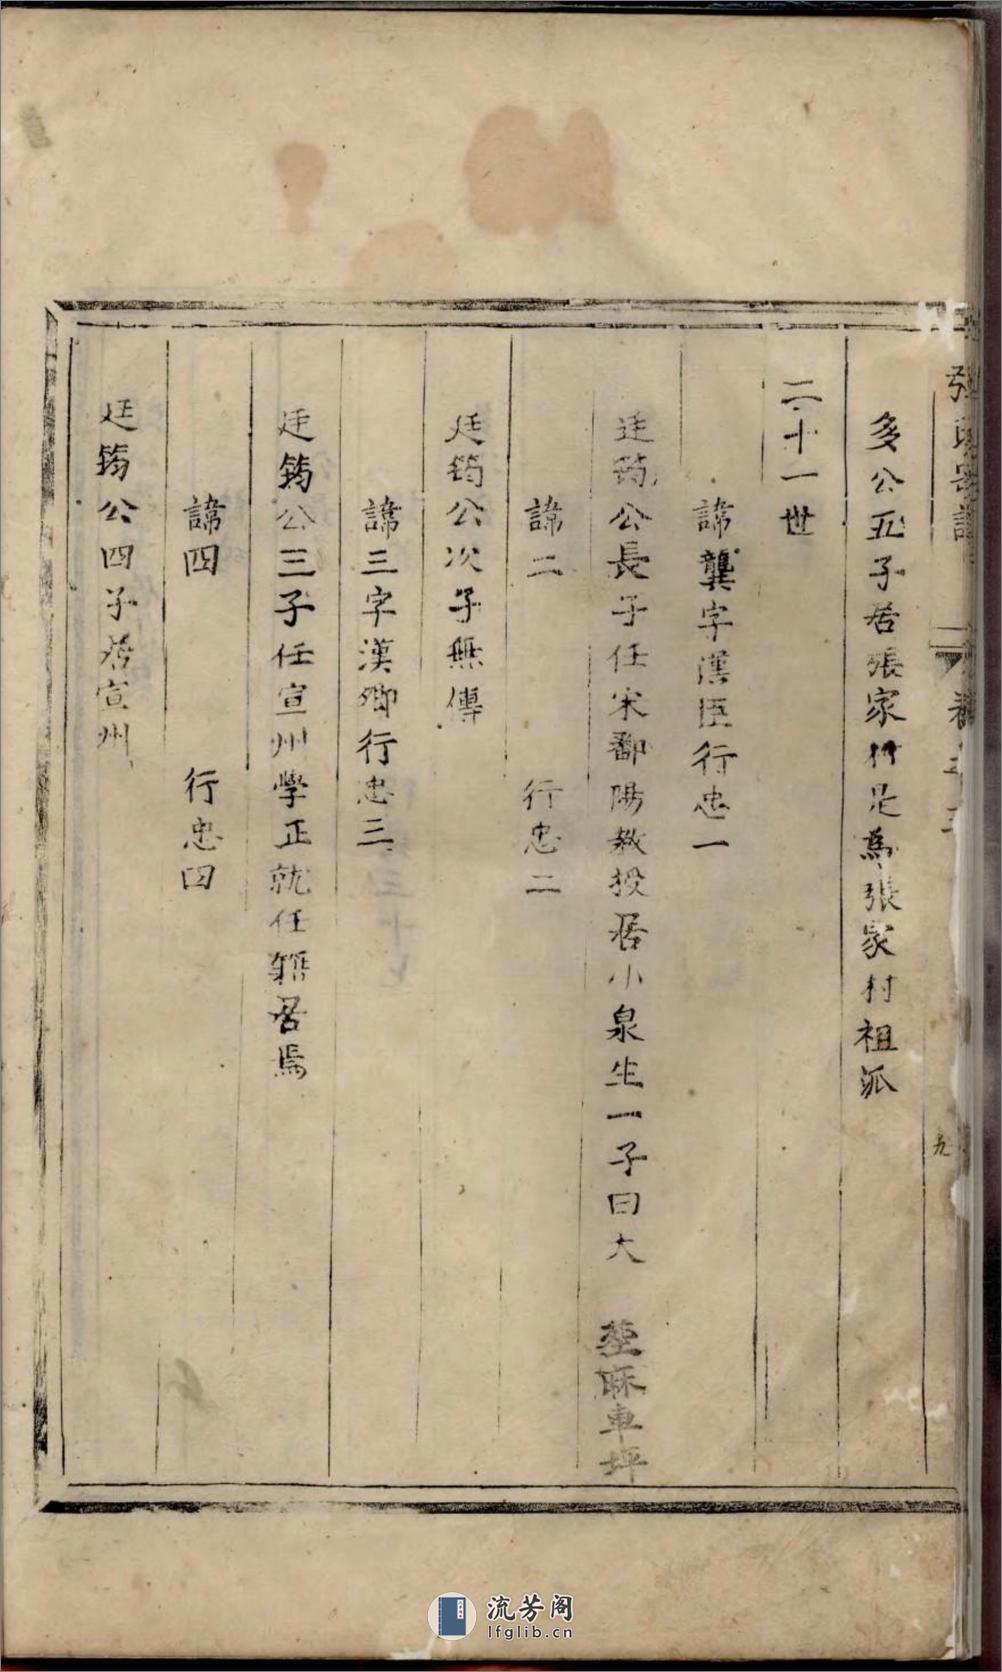 張氏宗譜
九
多公五子居張家村是為張家村祖派
二十一世
諱龔字漢臣行忠一
廷筠公長子任宋鄱陽教授居小泉生一子曰大 塟麻車坪
諱二 行忠二
廷筠公次子無傳
諱三字漢卿行忠三
廷筠公三子任宣州學正就任雜居焉
諱四 行忠四
廷筠公四子居宣州
流芳阁
lfglib.cn